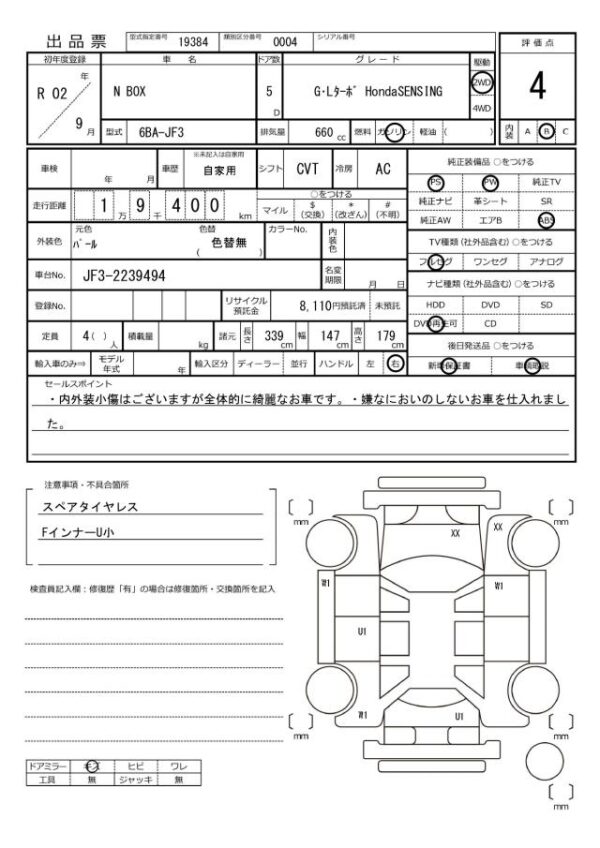 出品票 型式指定番号 19384 類別区分番号 0004 シリアル番号
評価点
初年度登録 車名 ドア数 グレード 駆動
R 02 年 9 月 N BOX 5 D G・Lターボ HondaSENSING 2WD 4WD 4
型式 6BA-JF3 排気量 660 cc 燃料 ガソリン 軽油 ( ) 内装 A B C
車検 年 月 車歴 ※未記入は自家用 自家用 シフト CVT 冷房 AC
走行距離 1 万 9 千 4 0 0 km ○をつける マイル $(交換) *(改ざん) #(不明)
外装色 元色 パール 色替 色替無 ( ) カラーNo. 内装色
車台No. JF3-2239494 名変期限 月 日
登録No. リサイクル預託金 8,110円預託済 未預託
定員 4( )人 積載量 kg 諸元 長さ 339 cm 幅 147 cm 高さ 179 cm
輸入車のみ⇒ モデル年式 年 輸入区分 ディーラー 並行 ハンドル 左 右
純正装備品 ○をつける
PS PW 純正TV
純正ナビ 革シート SR
純正AW エアB ABS
TV種類(社外品含む)○をつける
フルセグ ワンセグ アナログ
ナビ種類(社外品含む)○をつける
HDD DVD SD
DVD再生可 CD
後日発送品 ○をつける
新車保証書 車輌取説
セールスポイント
・内外装小傷はございますが全体的に綺麗なお車です。・嫌なにおいのしないお車を仕入れまし
た。
注意事項・不具合箇所
スペアタイヤレス
FインナーU小
検査員記入欄:修復歴「有」の場合は修復箇所・交換箇所を記入
ドアミラー キズ ヒビ ワレ
工具 無 ジャッキ 無
[ ] mm [ ] mm
XX XX
W1 W1
U1
W1 U1
[ ] mm [ ] mm
[ ] mm